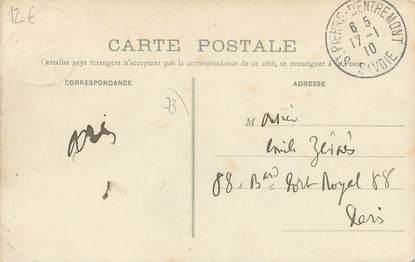 12 €
ST PIERRE-D'ENTREMONT
6 5
17-1
10
SAVOIE
CARTE POSTALE
Certains pays étrangers n'acceptant pas la correspondance de ce côté, se renseigner à la Poste
CORRESPONDANCE
ADRESSE
73
M
Emile
88. Bard Port Royal 88
Paris